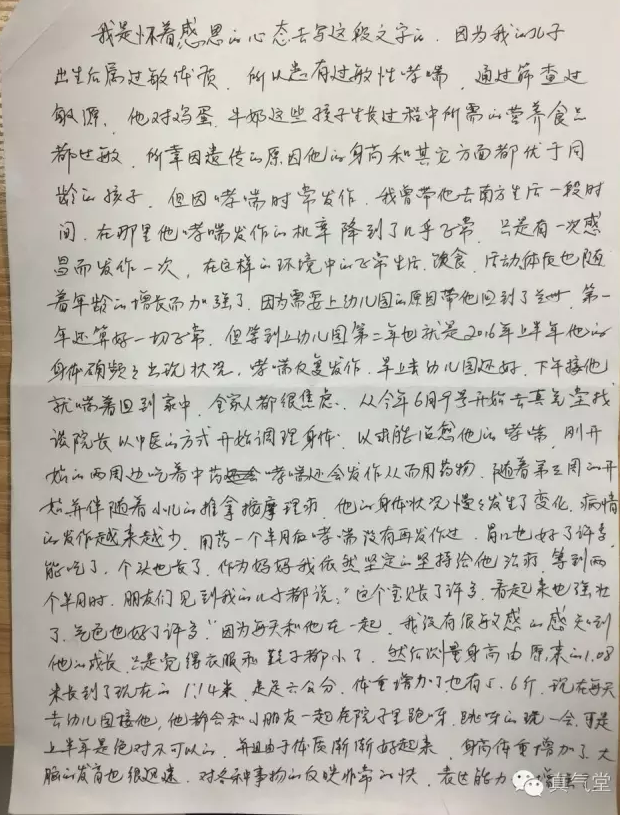 我是怀着感恩的心态去写这段文字的. 因为我的儿子
出生后属过敏体质, 所以患有过敏性哮喘, 通过筛查过
敏源、他对鸡蛋. 牛奶这些孩子生长过程中所需的营养食品
都过敏. 所幸因遗传的原因他的身高和其它方面都优于同
龄的孩子. 但因哮喘时常发作. 我曾带他去南方生活一段时
间. 在那里他哮喘发作的机率降到了几乎正常. 只是有一次感
冒而发作一次, 在这样的环境中的正常生活. 饮食. 活动体质也随
着年龄的增长而加强了. 因为需要上幼儿园的原因带他回到了兰州. 第一
年还算好一切正常. 但等到上幼儿园第二年也就是2016年上半年他的
身体频频出现状况. 哮喘反复发作. 早上去幼儿园还好. 下午接他
就喘着回到家中. 全家人都很焦虑. 从今年6月9号开始去真气堂找
该院长以中医的方式开始调理身体. 以求能治愈他的哮喘. 刚开
始的两周边吃着中药哮喘还会发作从而用药物. 随着第三周的开
始并伴随着小儿的推拿按摩理疗. 他的身体状况慢慢发生了变化. 病情
的发作越来越少. 用药一个半月后哮喘没有再发作过. 胃口也好了许多
能吃了. 个头也长了. 作为妈妈我依然坚定的坚持给他治疗. 等到两
个半月时. 朋友们见到我的儿子都说: "这个宝贝长了许多. 看起来也强壮
了. 气色也好了许多." 因为每天和他在一起. 我没有很敏感的感知到
他的成长. 只是觉得衣服和鞋子都小了. 然后测量身高由原来的1.08
米长到了现在的1.14米. 足足六公分. 体重增加了也有5.6斤. 现在每天
去幼儿园接他, 他都会和小朋友一起在院子里跑呀. 跳呀的玩一会. 于是
上半年是绝对不可以的. 并且由于体质渐渐好起来. 身高体重增加了. 大
脑的发育也很迅速. 对各种事物的反映非常的快. 表达能力增强
真气堂